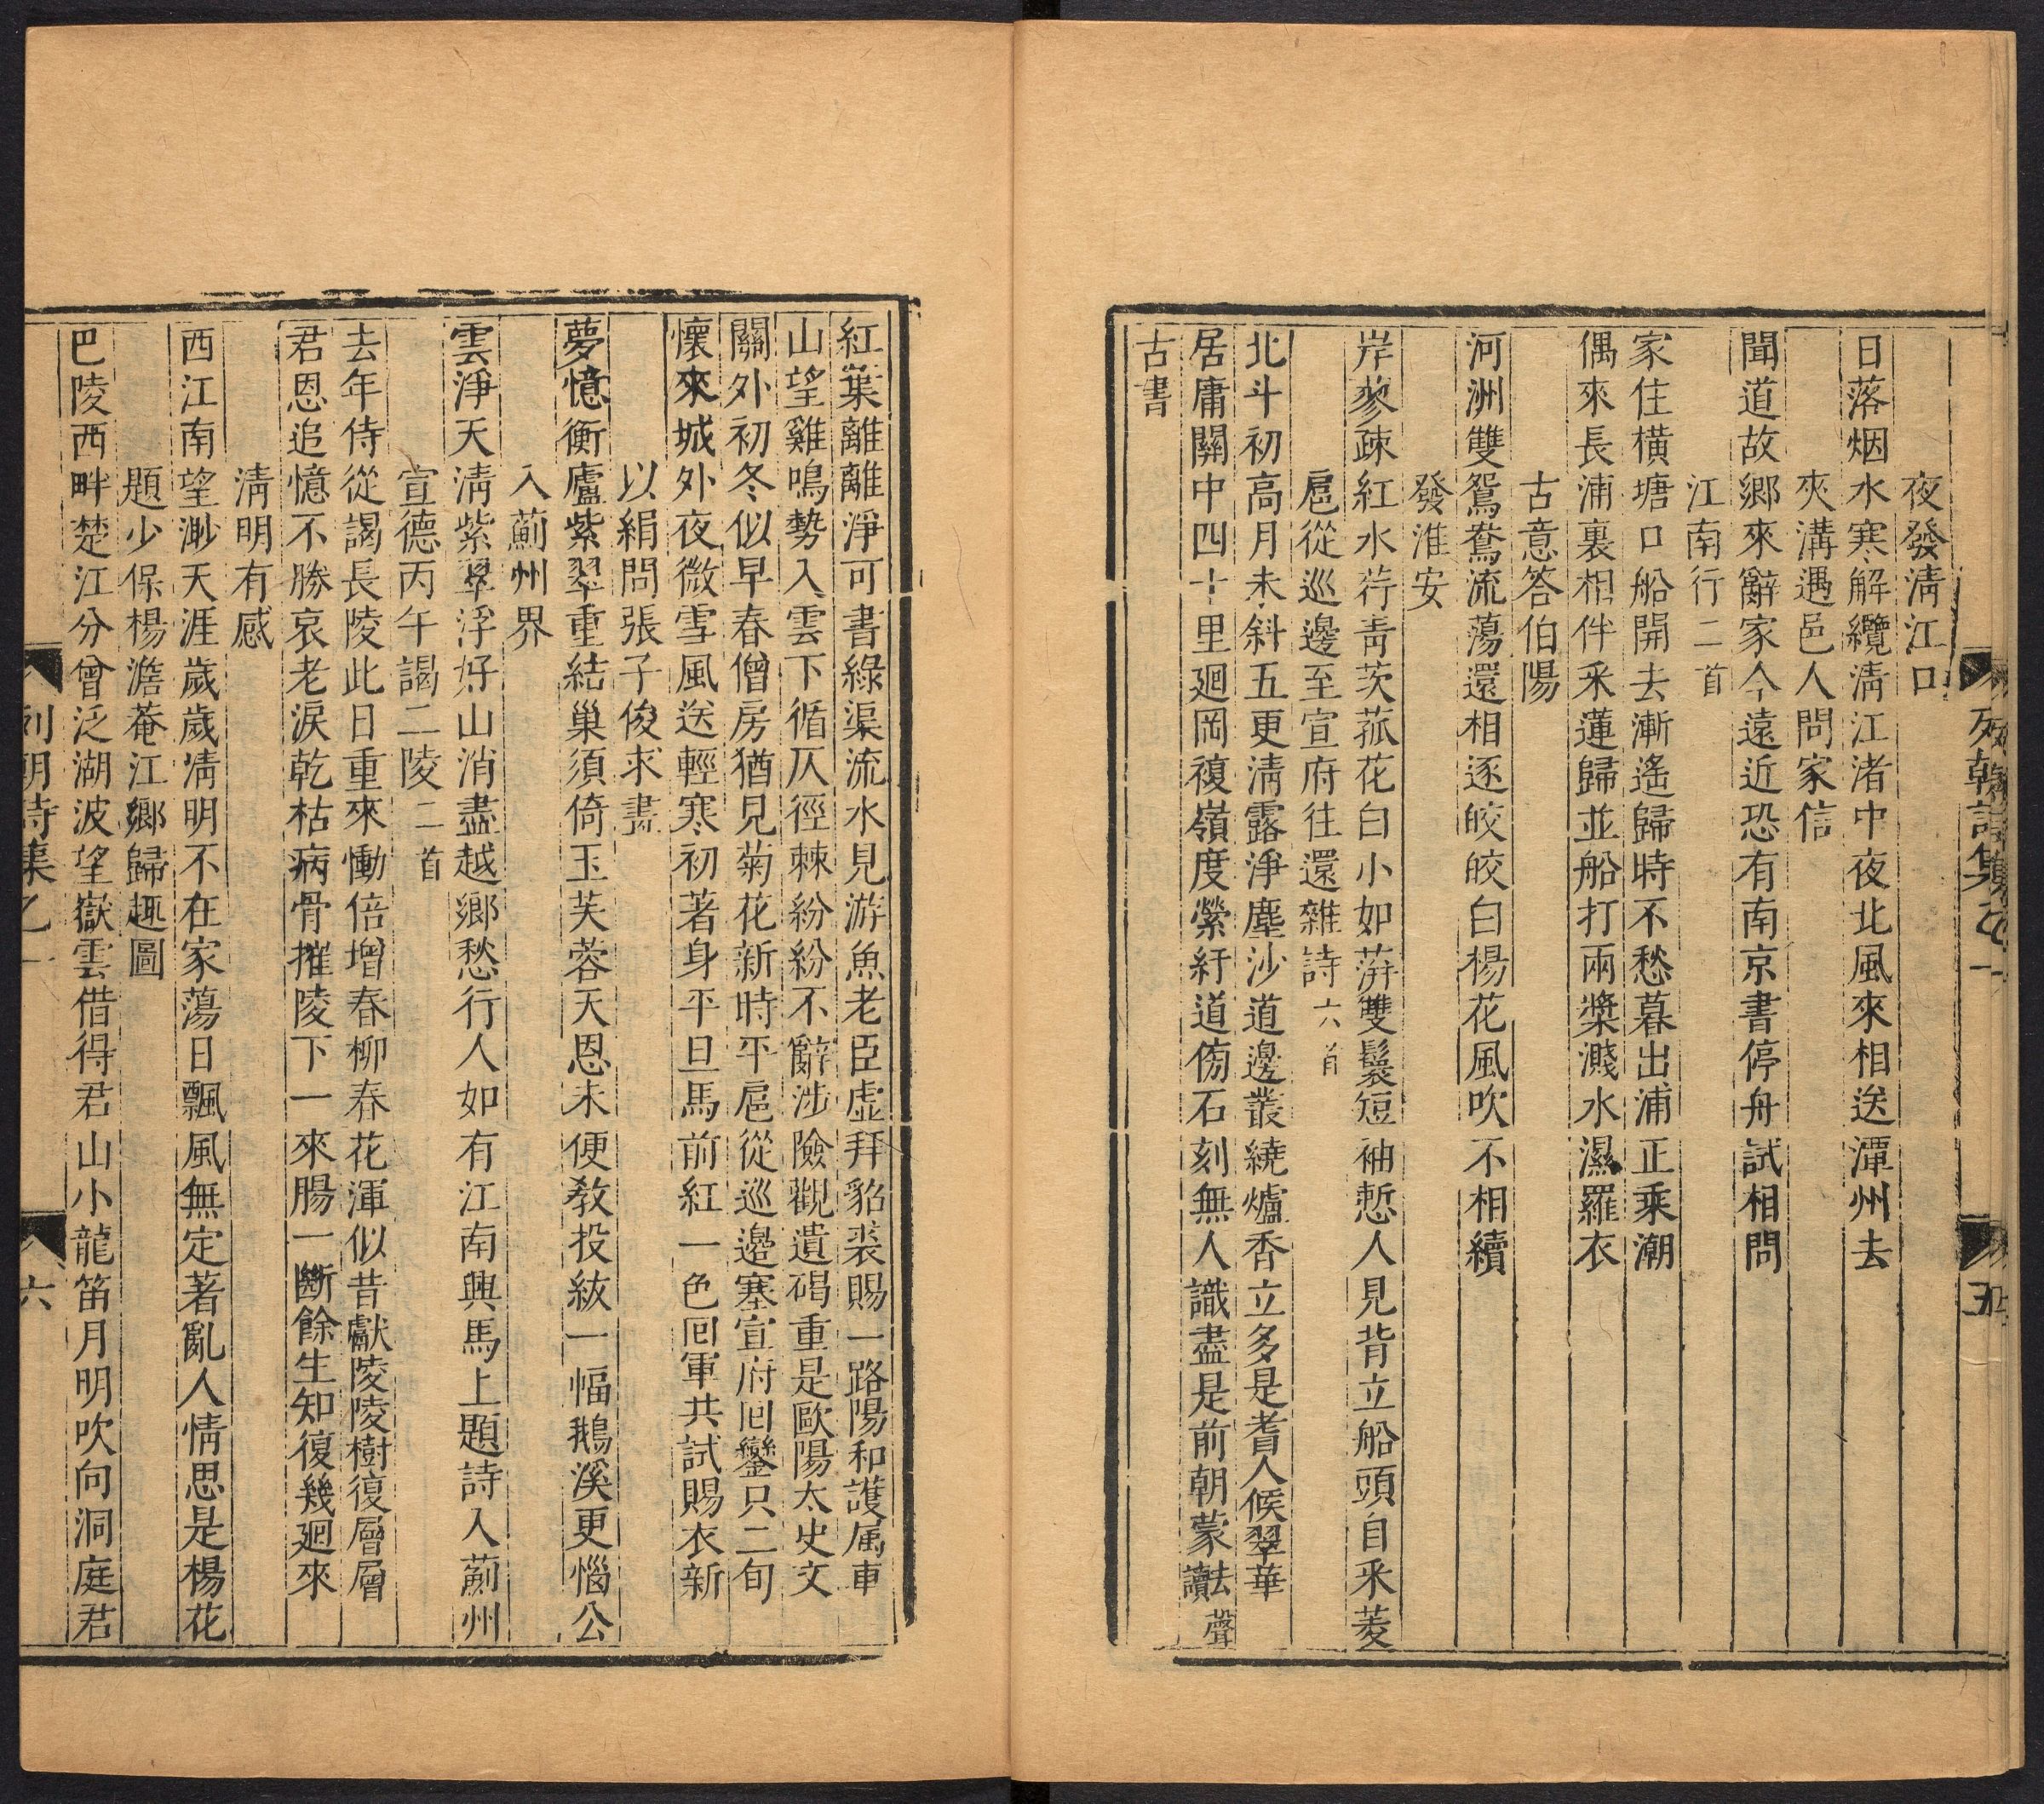 夜發淸江口
日落烟水寒解纜淸江渚中夜北風來相送潭州去
夾溝遇邑人問家信
聞道故鄉來辭家今遠近恐有南京書停舟試相問
江南行二首
家住橫塘口船開去漸遙歸時不愁暮出浦正乘潮
偶來長浦裏相伴采蓮歸並船打兩槳濺水濕羅衣
古意答伯陽
河洲雙鴛鴦流蕩還相逐皎皎白楊花風吹不相續
發淮安
岸蓼疎紅水荇靑茨菰花白小如蓱雙鬟短袖慙人見背立船頭自采菱
扈從巡邊至宣府往還雜詩六首
北斗初高月未斜五更淸露淨塵沙道邊叢繞爐香立多是耆人候翠華
居庸關中四十里廻岡複嶺度縈紆道傍石刻無人識盡是前朝蒙法聲讀
古書
紅葉離離淨可書綠渠流水見游魚老臣虛拜貂裘賜一路陽和護属車
山望雞鳴勢入雲下循仄徑棘紛紛不辭涉險觀遺碣重是歐陽太史文
關外初冬似早春僧房猶見菊花新時平扈從巡邊塞宣府囘鑾只二旬
懷來城外夜微雪風送輕寒初著身平旦馬前紅一色囘軍共試賜衣新
以絹問張子俊求畫
夢憶衡廬紫翠重結巢須倚玉芙蓉天恩未便敎投紱一幅鵝溪更惱公
入薊州界
雲淨天淸紫翠浮好山消盡越鄉愁行人如有江南興馬上題詩入薊州
宣德丙午謁二陵二首
去年侍從謁長陵此日重來慟倍增春柳春花渾似昔獻陵陵樹復層層
君恩追憶不勝哀老淚乾枯病骨摧陵下一來腸一斷餘生知復幾廻來
淸明有感
西江南望渺天涯歲歲淸明不在家蕩日飄風無定著亂人情思是楊花
題少保楊澹菴江鄉歸趣圖
巴陵西畔楚江分曾泛湖波望嶽雲借得君山小龍笛月明吹向洞庭君
列朝詩集乙一
六